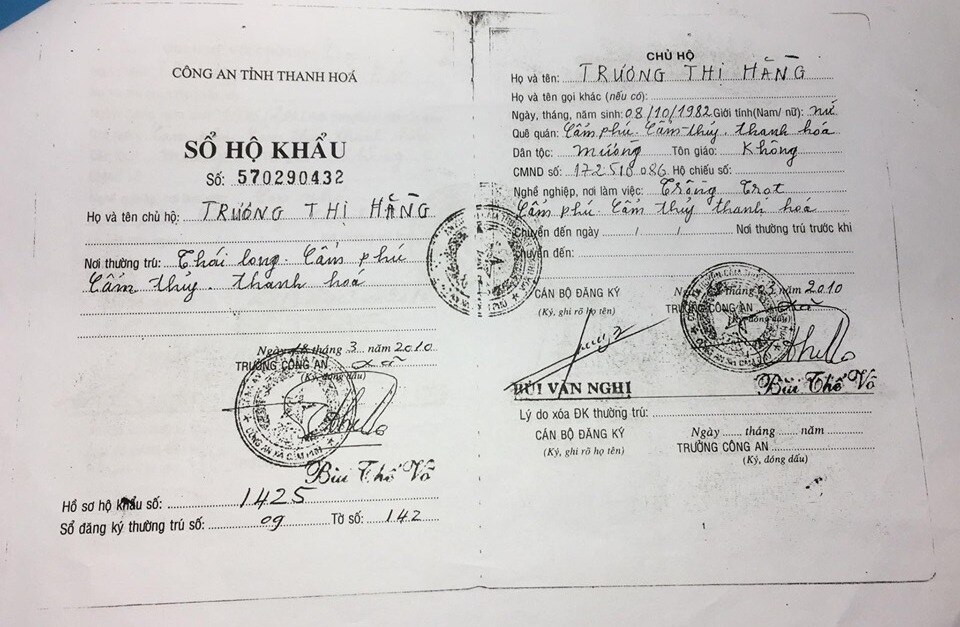 CÔNG AN TỈNH THANH HOÁ
SỔ HỘ KHẨU
Số: 570290432
Họ và tên chủ hộ: TRƯƠNG THỊ HẰNG
Nơi thường trú: Thái long. Cẩm phú
Cẩm thủy. thanh hoá
Ngày 18 tháng 3 năm 2010
TRƯỞNG CÔNG AN xã
(Ký, đóng dấu)
CÔNG AN XÃ CẨM PHÚ
Bùi Thế Võ
Hồ sơ hộ khẩu số: 1425
Sổ đăng ký thường trú số: 09 Tờ số: 142
CHỦ HỘ
Họ và tên: TRƯƠNG THỊ HẰNG
Họ và tên gọi khác (nếu có):
Ngày, tháng, năm sinh: 08/10/1982 Giới tính (Nam/ nữ): nữ
Quê quán: Cẩm phú. Cẩm thủy. thanh hóa
Dân tộc: mường Tôn giáo: Không
CMND số: 172510086 Hộ chiếu số:
Nghề nghiệp, nơi làm việc: Trồng Trọt
Cẩm phú Cẩm thủy thanh hoá
Chuyển đến ngày / / Nơi thường trú trước khi
chuyển đến:
Ngày tháng 03 năm 2010
CÁN BỘ ĐĂNG KÝ TRƯỞNG CÔNG AN xã
(Ký, ghi rõ họ tên) (Ký, đóng dấu)
BÙI VĂN NGHỊ Bùi Thế Võ
Lý do xóa ĐK thường trú:
Ngày tháng năm
CÁN BỘ ĐĂNG KÝ TRƯỞNG CÔNG AN
(Ký, ghi rõ họ tên) (Ký, đóng dấu)
1